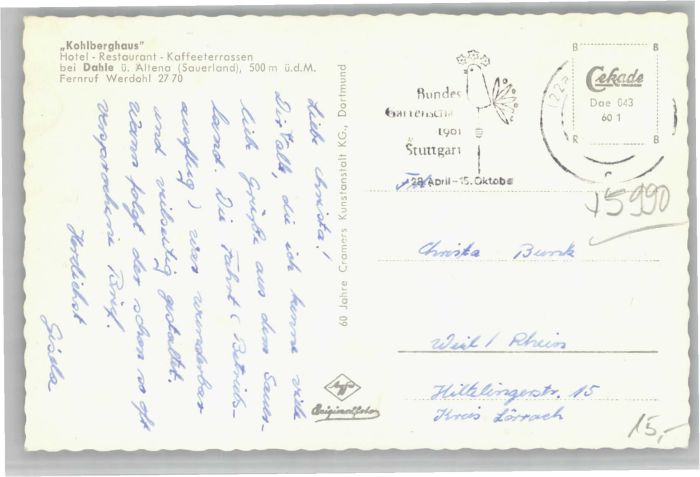 „Kohlberghaus"
Hotel - Restaurant - Kaffeeterrassen
bei Dahle ü. Altena (Sauerland), 500 m ü.d.M.
Fernruf Werdohl 27 70
Liebe Christa!
Dir alle, die ich kenne viele
liebe Grüße aus dem Sauer-
land. Die Fahrt (Betriebs-
ausflug) war wunderbar
und vielseitig gestaltet.
Wann folgt der schon so oft
versprochene Brief.
Herzlichst
Gisela
60 Jahre Cramers Kunstanstalt KG., Dortmund
Agfa
Originalfoto
Bundes
Gartenscha
1961
Stuttgart
28. April - 15. Oktobe
(22a
B B
Cekade
Dae 043
60 1
R R
15990
Frl.
Christa Bunk
Weil / Rhein
Hiltelingerstr. 15
Kreis Lörrach
15,-